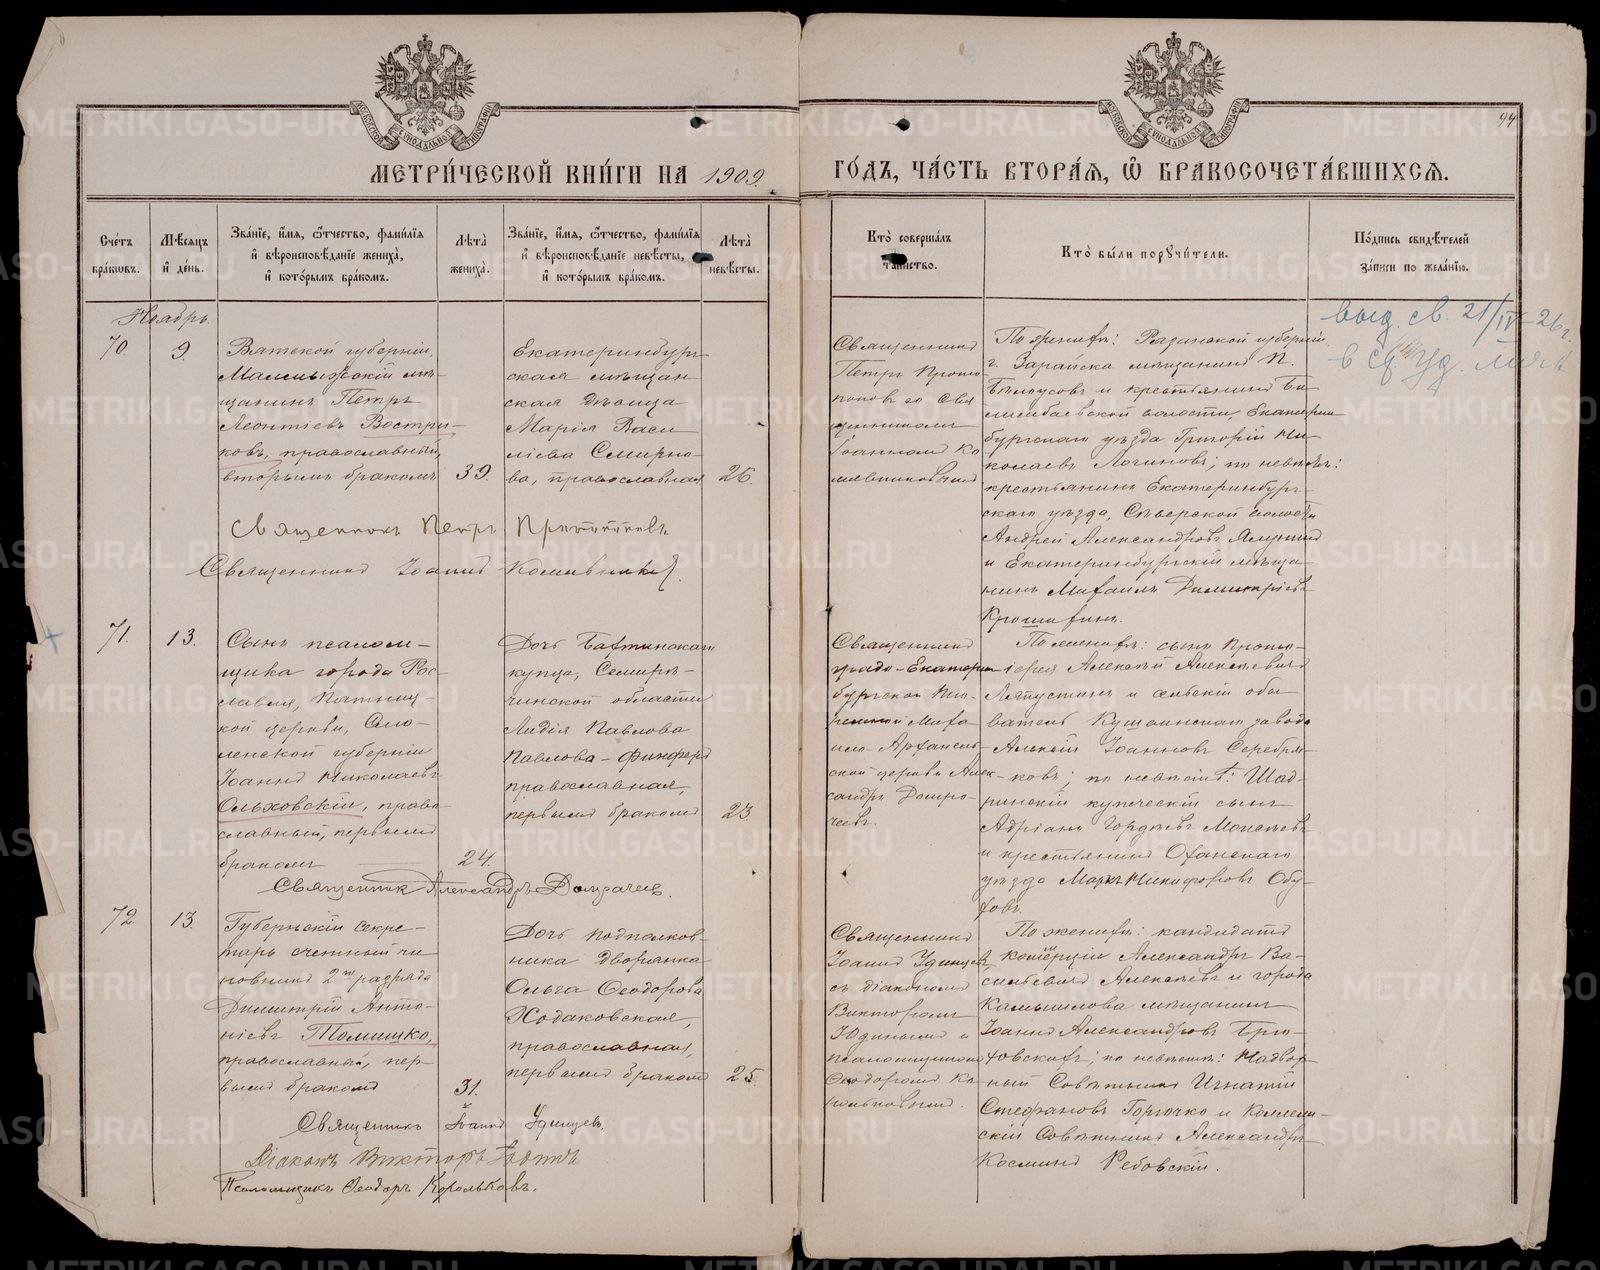 94
МЕТРИ́ЧЕСКОЙ КНИ́ГИ НА 1909.
ГО́ДЪ, ЧА́СТЬ ВТОРА́Я, Ѡ҆ БРАКОСОЧЕТА́ВШИХСЯ.
Сче́тъ бра́кѡвъ.
Мѣ́сяцъ и҆ де́нь.
Зва́нїе, и҆́мя, ѻ҆́тчество, фами́лїя и҆ вѣроисповѣ́данїе жениха̀, и҆ кото́рымъ бра́комъ.
Лѣ́та̀ жениха̀.
Зва́нїе, и҆́мя, ѻ҆́тчество, фами́лїя и҆ вѣроисповѣ́данїе невѣ́сты, и҆ кото́рымъ бра́комъ.
Лѣ́та̀ невѣ́сты.
Кто̀ соверша́лъ та́инство.
Кто̀ бы́ли порꙋчи́тели.
По́дпись свидѣ́телей за́писи по жела́нїю.
Ноябрь.
выд. св. 21/IV-26 г.
70
9.
Вятской губерніи,
Малмыжскій мѣ-
щанинъ Петръ
Леонтіевъ Востри-
ковъ, православный,
вторымъ бракомъ
39.
Екатеринбург-
ская мѣщан-
ская дѣвица
Марія Васи
ліева Смирно-
ва, православная
26.
Священникъ
Петръ Прото
поповъ со Свя
щенникомъ
Іоанномъ Ко
По женихѣ: Рязанской губерніи
г. Зарайска мѣщанинъ П.
Бѣлоусовъ и крестьянинъ Би-
лимбаевской волости, Екатерин
бургскаго уѣзда Григорій Ни-
колаевъ Логиновъ; по невѣстѣ:
крестьянинъ Екатеринбург-
скаго уѣзда, Сѣверской волости
Андрей Александровъ Ялунинъ
и Екатеринбургскій мѣща-
нинъ Михаилъ Димитріевъ
Священникъ Петръ Протопоповъ
Священникъ Іоаннъ
71.
13.
Сынъ псалом-
щика города Рос-
лавля, Пятниц-
кой церкви, Смо-
ленской губерніи
Іоаннъ Николаевъ
Ольховскій, право-
славный, первымъ
бракомъ
24.
Дочь Бахтинскаго
купца, Семирѣ-
чинской области
Лидія Павлова
Павлова-Финферъ
православная,
первымъ бракомъ
23.
Священникъ
градо-Екатерин
бургской Тю-
ремной Миха-
ило-Архангель-
ской церкви Алек-
сандръ
По женихѣ: сынъ прото-
іерея Алексѣй Алексѣевичъ
Ляпустинъ и сельскій обы-
ватель Кушвинскаго завода
Алексѣй Іоанновъ Серебря-
ковъ; по невѣстѣ: Шад-
ринскій купеческій сынъ
Адріанъ Гордѣевъ Мокѣевъ
и крестьянинъ Оханскаго
уѣзда Маркъ Никифоровъ Обу-
ховъ.
Священникъ Александръ
72.
13.
Губернскій секре-
тарь счетный чи-
новникъ 2го разряда
Димитрій Анто-
ніевъ Томишко,
православный, пер-
вымъ бракомъ
31.
Дочь подполков-
ника дворянка
Ольга Ѳеодорова
Ходаковская,
православная,
первымъ бракомъ
25.
Священникъ
Іоаннъ Удинцевъ
съ діакономъ
Викторомъ
Юдинымъ и
псаломщикомъ
Ѳеодоромъ Ко
рольковымъ.
По женихѣ: кандидатъ
комерціи Александръ Ва-
сильевъ Алексѣевъ и города
Камышлова мѣщанинъ
Іоаннъ Александровъ Брю-
ховскихъ; по невѣстѣ: Надвор-
ный Совѣтникъ Игнатій
Стефановъ Горючко и Коллеж-
скій Совѣтникъ Александръ
Косминъ Ребовскій.
Священникъ Іоаннъ Удинцевъ.
Діаконъ Викторъ Юдинъ
Псаломщикъ Ѳеодоръ Корольковъ.
METRIKI.GASO-URAL.RU